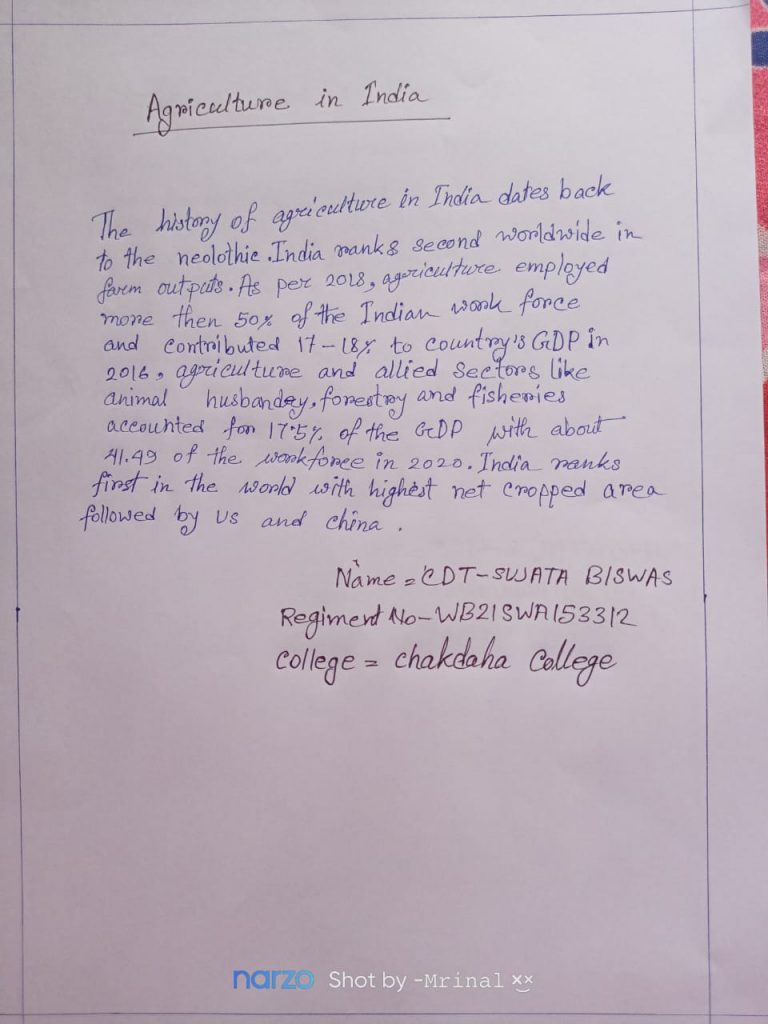 Agriculture in India
The history of agriculture in India dates back
to the neolothic. India ranks second worldwide in
farm outputs. As per 2018, agariculture employed
more then 50% of the Indian work force
and contributed 17-18% to country's GDP in
2016, agriculture and allied sectors like
animal husbandry, forestry and fisheries
accounted for 17.5% of the GDP with about
41.49 of the workforce in 2020. India ranks
first in the world with highest net cropped area
followed by US and china.
Name = CDT-SWATA BISWAS
Regiment No-WB21SWA153312
College = chakdaha College
narzo Shot by -Mrinal ××